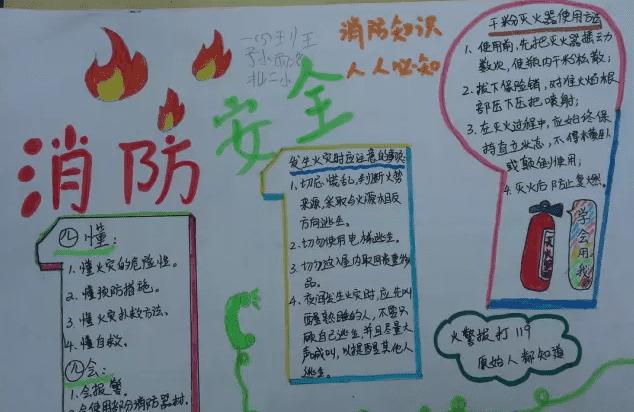 消防安全
消防知识
人人必知
干粉灭火器使用方法
1、使用前,先把灭火器摇动
数次,使瓶内干粉松散;
2、拔下保险销,对准火焰根
部压下压把喷射;
3、在灭火过程中,应始终保
持直立状态,不得横卧
或颠倒使用;
4、灭火后防止复燃。
灭火器
学会用我
发生火灾时应注意的事项
1、切忌慌乱,判断火势
来源,采取与火源相反
方向逃生。
2、切勿使用电梯逃生。
3、切勿返屋内取回贵重物
品。
4、夜间发生火灾时,应先叫
醒熟睡的人,不要只
顾自己逃生,并且尽量大
声喊叫,以提醒其他人
逃生。
四懂:
1、懂火灾的危险性。
2、懂预防措施。
3、懂火灾扑救方法。
4、懂自救。
四会:
1、会报警。
2、会使用部分消防器材。
火警拔打119
原始人都知道